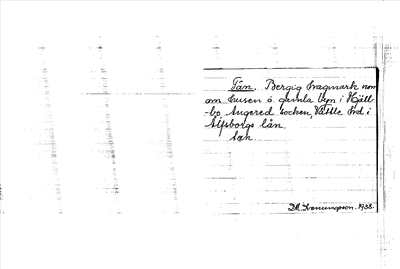 Tån. Bergig hagmark nor
om husen å gamla byn i Hjäll-
-bo Angered socken, Vättle hd i
Älfsborgs län.
1938.